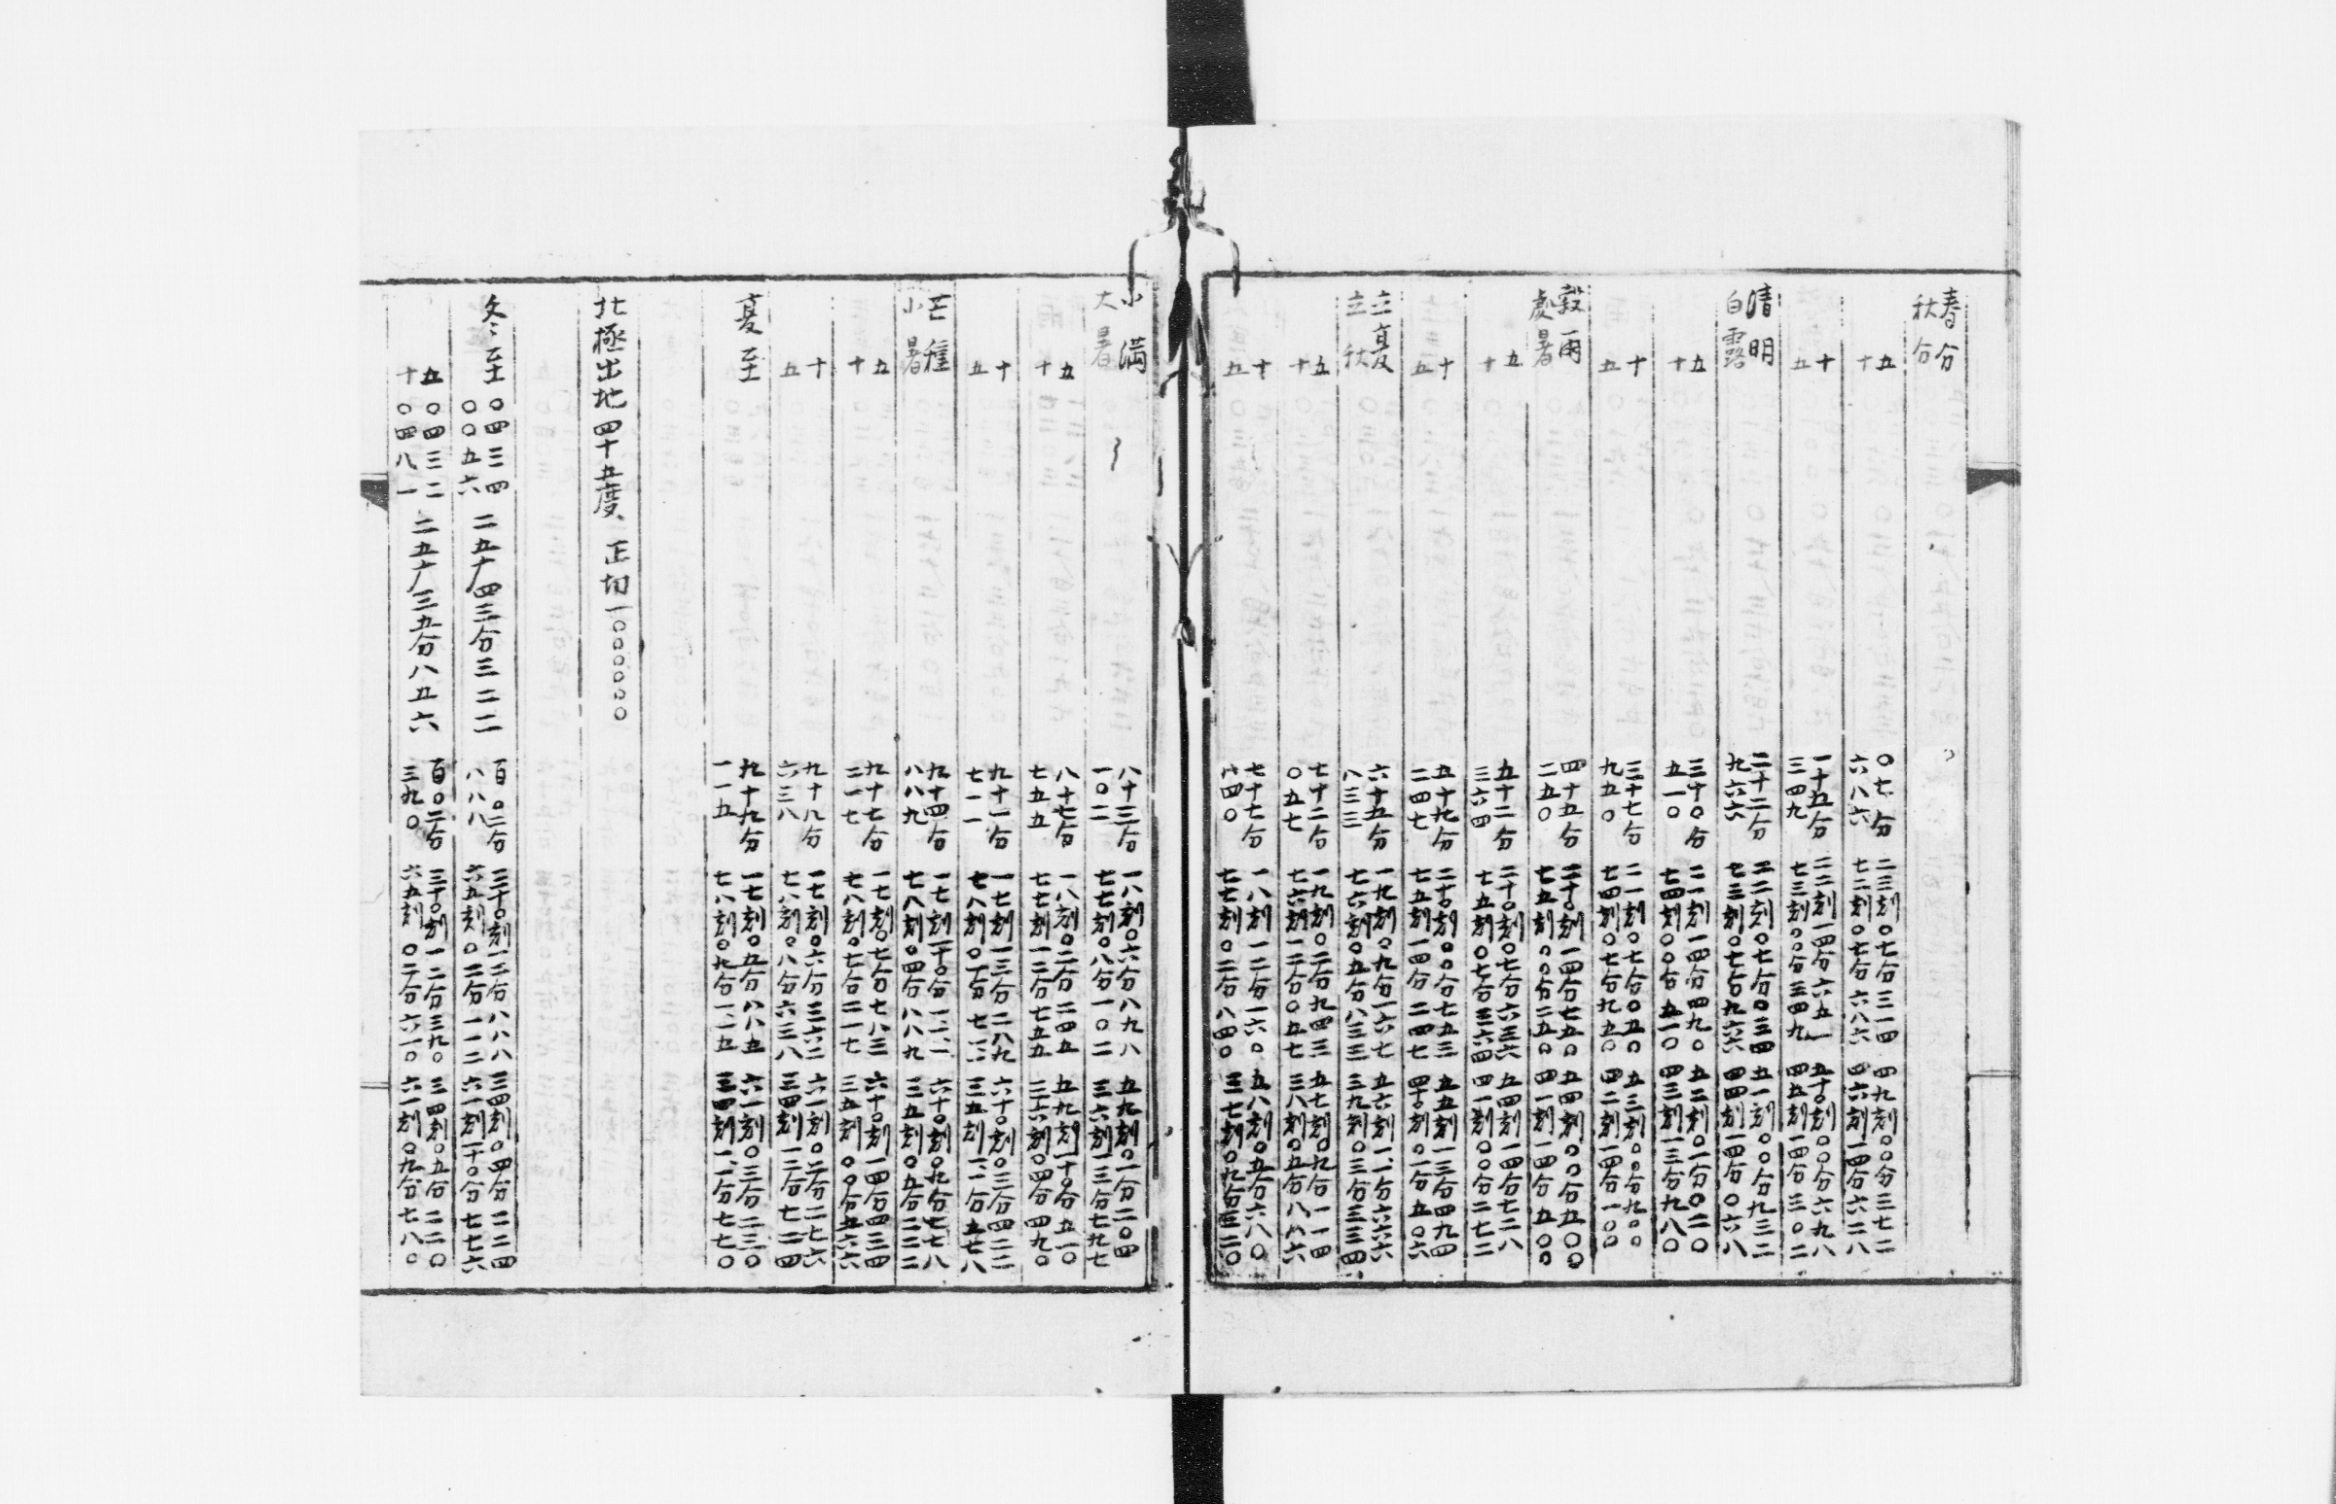 春分
秋分
五 〇七分 二三刻〇七分三一四 四九刻〇〇分三七二
十 六八六 七二刻〇七分六八六 四六刻一四分六二八
十 一十五分 二二刻一四分六五一 五十〇刻〇〇分六九八
五 三四九 七三刻〇〇分三四九 四五刻一四分三〇二
清明 二十二分 二二刻〇七分〇三四 五一刻〇〇分九三二
白露 九六六 七三刻〇七分九六六 四四刻一四分〇六八
五 三十〇分 二一刻一四分四九〇 五二刻〇一分〇二〇
十 五一〇 七四刻〇〇分五一〇 四三刻一三分九八〇
十 三十七分 二一刻〇七分〇五〇 五三刻〇〇分九〇〇
五 九五〇 七四刻〇七分九五〇 四二刻一四分一〇〇
穀雨 四十五分 二十〇刻一四分七五〇 五四刻〇〇分五〇〇
處暑 二五〇 七五刻〇〇分二五〇 四一刻一四分五〇〇
五 五十二分 二十〇刻〇七分六三六 五四刻一四分七二八
十 三六四 七五刻〇七分三六四 四一刻〇〇分二七二
十 五十九分 二十〇刻〇〇分七五三 五五刻一三分四九四
五 二四七 七五刻一四分二四七 四十〇刻〇一分五〇六
立夏 六十五分 一九刻〇九分一六七 五六刻一一分六六六
立秋 八三三 七六刻〇五分八三三 三九刻〇三分三三四
五 七十二分 一九刻〇二分九四三 五七刻〇九分一一四
十 〇五七 七六刻一二分〇五七 三八刻〇五分八八六
十 七十七分 一八刻一二分一六〇 五八刻〇五分六八〇
五 八四〇 七七刻〇二分八四〇 三七刻〇九分三二〇
小滿 八十三分 一八刻〇六分八九八 五九刻〇一分二〇四
大暑 一〇二 七七刻〇八分一〇二 三六刻一三分七九七
五 八十七分 一八刻〇二分二四五 五九刻一十〇分五一〇
十 七五五 七七刻一二分七五五 三六刻〇四分四九〇
十 九十一分 一七刻一三分二八九 六十〇刻〇三分四二二
五 七一一 七八刻〇一分七一一 三五刻一一分五七八
芒種 九十四分 一七刻一十〇分一一一 六十〇刻〇九分七七八
小暑 八八九 七八刻〇四分八八九 三五刻〇五分二二二
五 九十七分 一七刻〇七分七八三 六十〇刻一四分四三四
十 二一七 七八刻〇七分二一七 三五刻〇〇分五六六
十 九十八分 一七刻〇六分三六二 六一刻〇二分二七六
五 六三八 七八刻〇八分六三八 三四刻一二分七二四
夏至 九十九分 一七刻〇五分八八五 六一刻〇三分二三〇
一一五 七八刻〇九分一一五 三四刻一一分七七〇
北極出地四十五度、正切一〇〇〇〇〇〇
冬至 〇四三四 二五度四三分三二二 百〇二分 三十〇刻一二分八八八 三四刻〇四分二二四
〇〇五六 八八八 六五刻〇二分一一二 六一刻一十〇分七七六
五 〇四三二 二五度三五分八五六 百〇二分 三十〇刻一二分三九〇 三四刻〇五分二二〇
十 〇四八一 三九〇 六五刻〇二分六一〇 六一刻〇九分七八〇